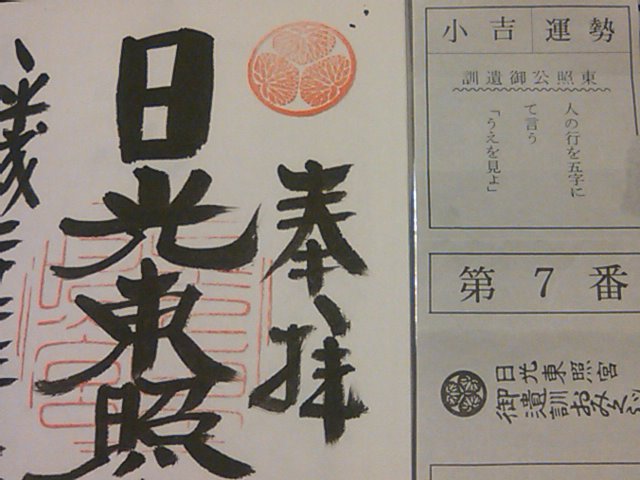 奉拝
日光東照
平成二十三
運勢 小吉
東照公御遺訓
人の行を五字に
て言う
「うえを見よ」
第7番
日光東照宮
御遺訓おみくじ